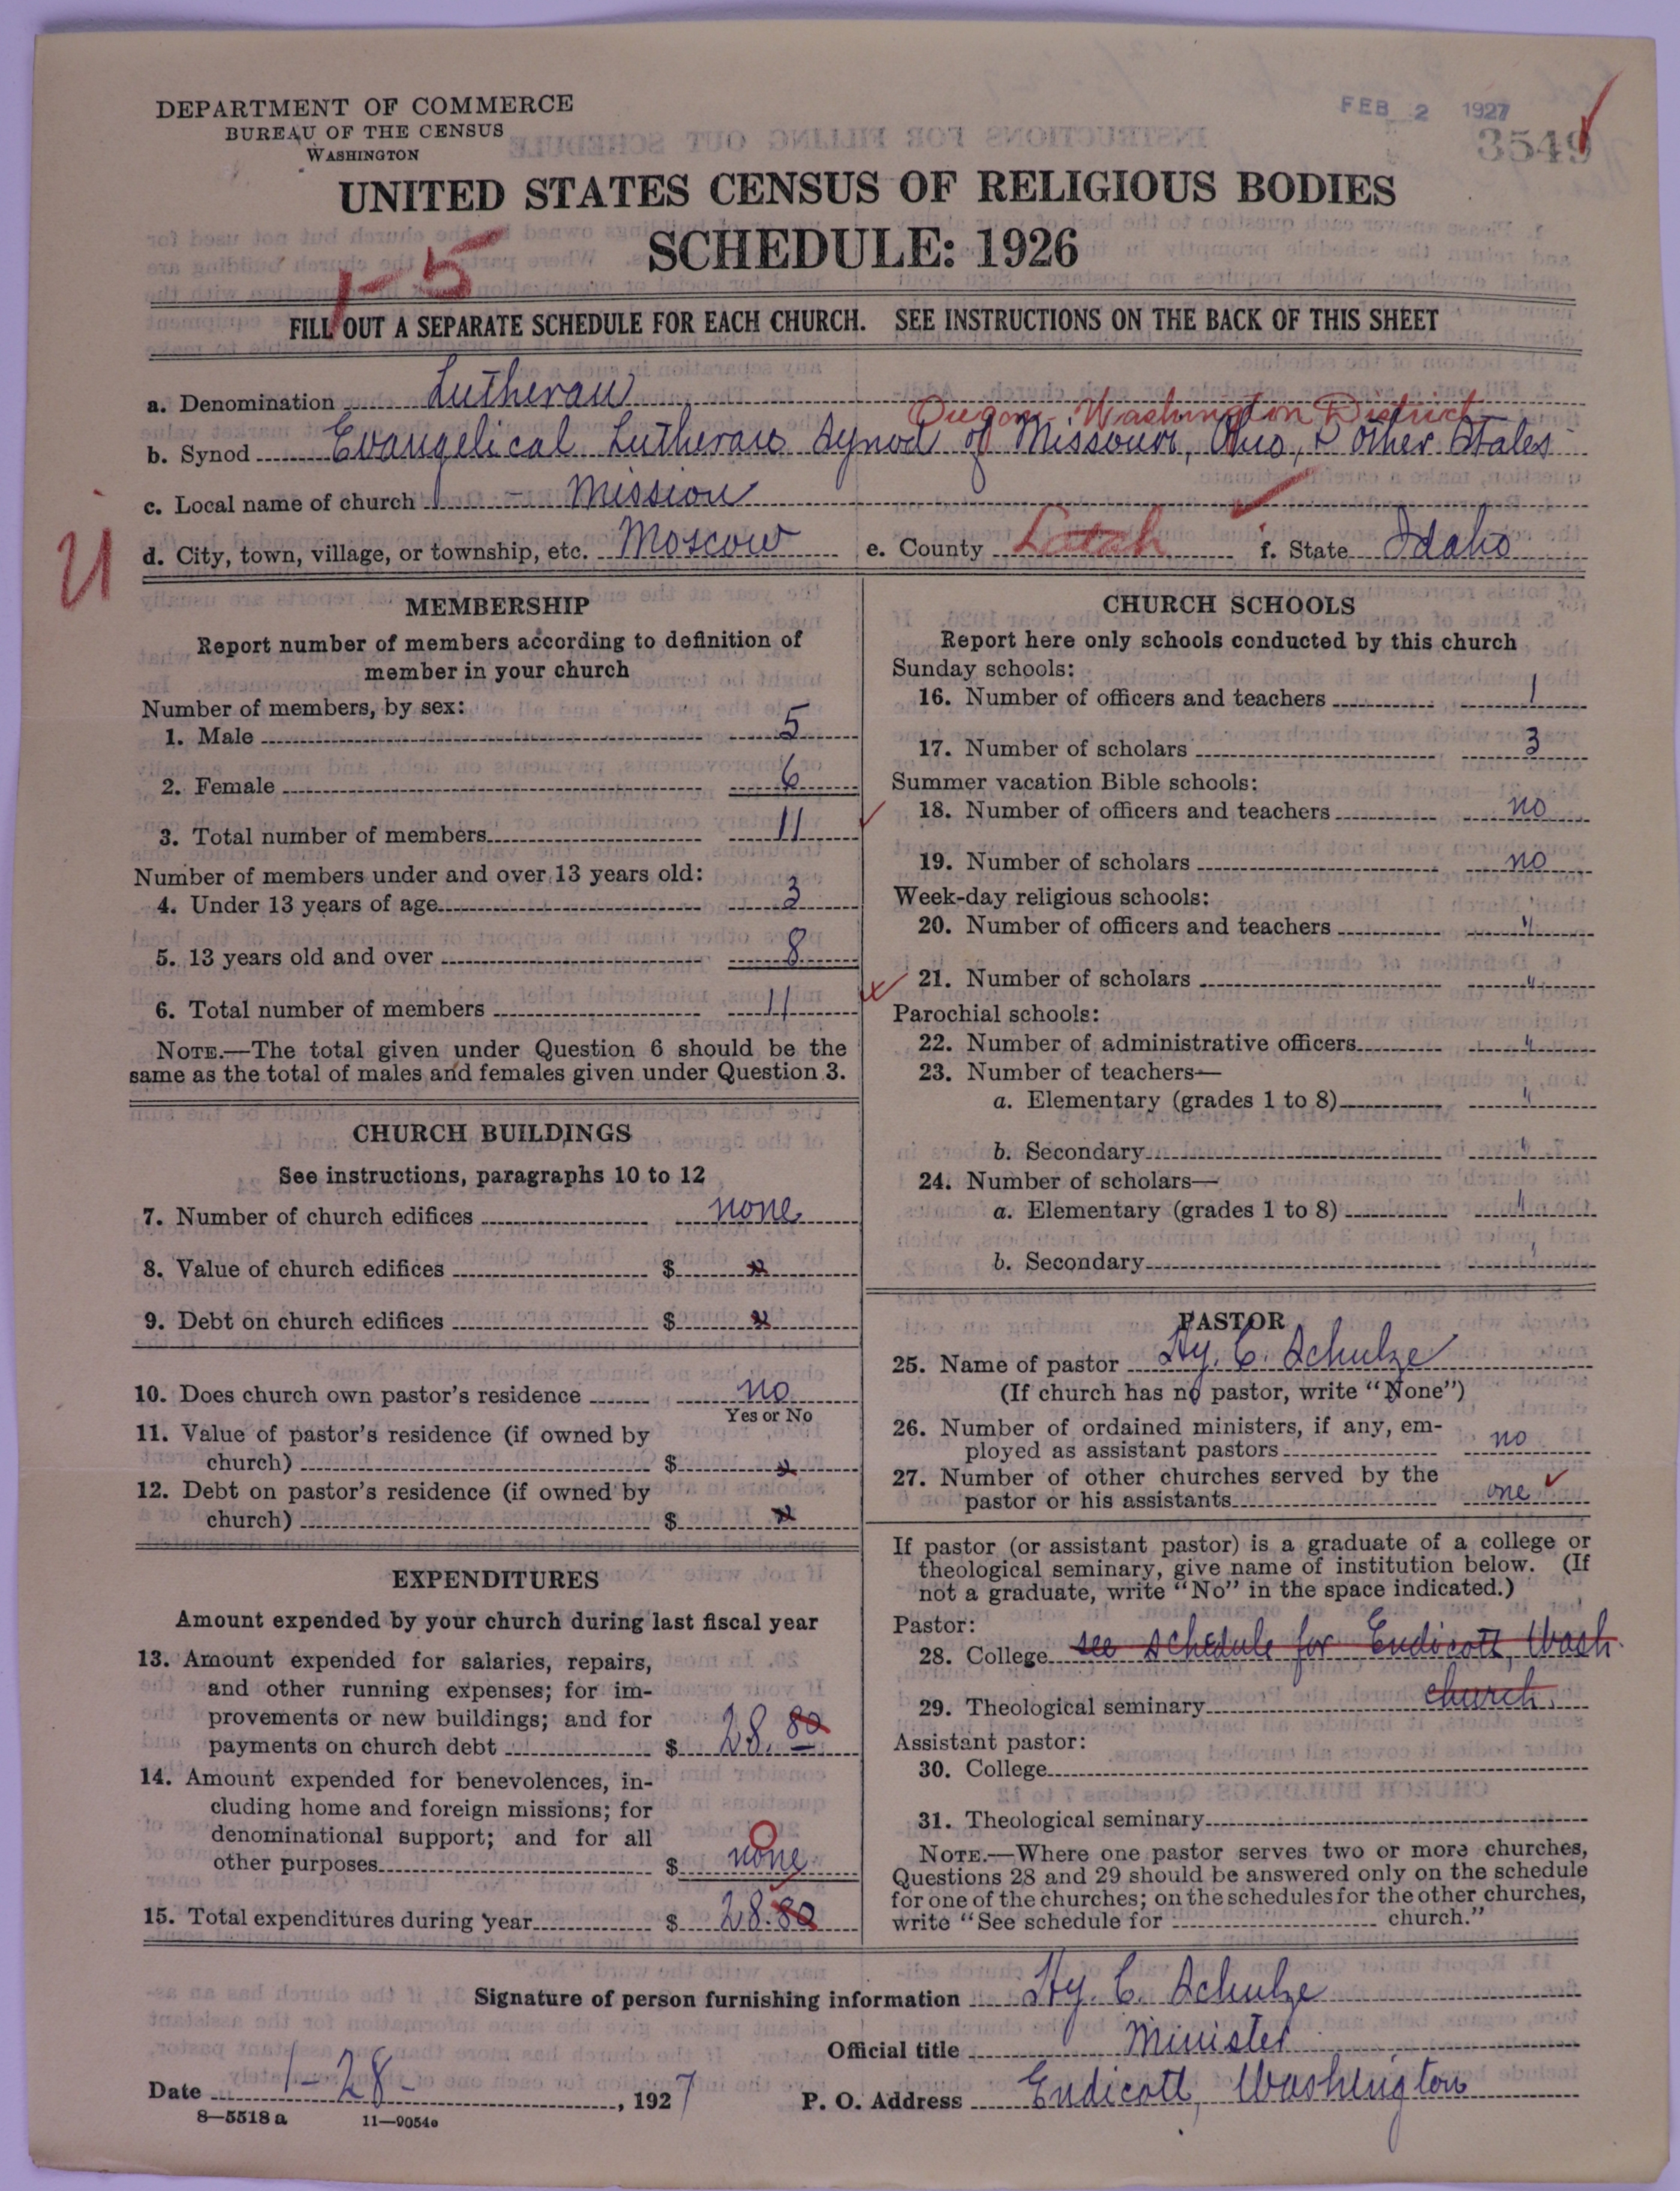 DEPARTMENT OF COMMERCE
BUREAU OF THE CENSUS
WASHINGTON
FEB 2 1927
3549
UNITED STATES CENSUS OF RELIGIOUS BODIES
SCHEDULE: 1926
1-5
FILL OUT A SEPARATE SCHEDULE FOR EACH CHURCH. SEE INSTRUCTIONS ON THE BACK OF THIS SHEET
a. Denomination Lutheran
Oregon Washington District
b. Synod Evangelical Lutheran Synod of Missouri, Ohio, & other States
c. Local name of church - Mission
U
d. City, town, village, or township, etc. Moscow e. County Latah f. State Idaho
MEMBERSHIP
Report number of members according to definition of
member in your church
Number of members, by sex:
1. Male 5
2. Female 6
3. Total number of members 11
Number of members under and over 13 years old:
4. Under 13 years of age 3
5. 13 years old and over 8
6. Total number of members 11
NOTE.—The total given under Question 6 should be the
same as the total of males and females given under Question 3.
CHURCH BUILDINGS
See instructions, paragraphs 10 to 12
7. Number of church edifices none
8. Value of church edifices $
9. Debt on church edifices $
10. Does church own pastor's residence no
Yes or No
11. Value of pastor's residence (if owned by
church) $
12. Debt on pastor's residence (if owned by
church) $
EXPENDITURES
Amount expended by your church during last fiscal year
13. Amount expended for salaries, repairs,
and other running expenses; for im-
provements or new buildings; and for
payments on church debt $ 28.80
14. Amount expended for benevolences, in-
cluding home and foreign missions; for
denominational support; and for all
other purposes $ none
0
15. Total expenditures during year $ 28.80
CHURCH SCHOOLS
Report here only schools conducted by this church
Sunday schools:
16. Number of officers and teachers 1
17. Number of scholars 3
Summer vacation Bible schools:
18. Number of officers and teachers no
19. Number of scholars no
Week-day religious schools:
20. Number of officers and teachers "
21. Number of scholars "
Parochial schools:
22. Number of administrative officers "
23. Number of teachers—
a. Elementary (grades 1 to 8) "
b. Secondary "
24. Number of scholars—
a. Elementary (grades 1 to 8) "
b. Secondary "
PASTOR
25. Name of pastor Hy. C. Schulze
(If church has no pastor, write "None")
26. Number of ordained ministers, if any, em-
ployed as assistant pastors no
27. Number of other churches served by the
pastor or his assistants one
If pastor (or assistant pastor) is a graduate of a college or
theological seminary, give name of institution below. (If
not a graduate, write "No" in the space indicated.)
Pastor:
28. College see schedule for Endicott, Wash.
29. Theological seminary church.
Assistant pastor:
30. College
31. Theological seminary
NOTE.—Where one pastor serves two or more churches,
Questions 28 and 29 should be answered only on the schedule
for one of the churches; on the schedules for the other churches,
write "See schedule for church."
Signature of person furnishing information Hy. C. Schulze
Official title Minister
Date 1-28-, 1927 P. O. Address Endicott, Washington
8—5518 a 11—9054e